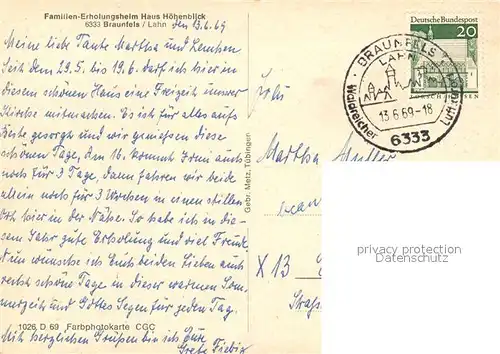 Familien-Erholungsheim Haus Höhenblick
6333 Braunfels / Lahn den 13.6.69
Meine liebe Tante Martha und
Seit dem 29.5. bis 19.6. darf ich hier in
diesem schönen Haus eine Freizeit unserer
Kirche mitmachen. Es ist für alles aufs
Beste gesorgt und wir genießen diese
schönen Tage. Am 16. kommt Irmi auch
noch für 3 Tage, dann fahren wir beide
allein noch für 3 Wochen in einen stillen
Ort hier in der Nähe. So habe ich in die-
sem Jahr gute Erholung und viel Freude.
Nun wünsche ich Euch beiden Lieben auch
recht schöne Tage in dieser warmen Som-
merzeit und Gottes Segen für jeden Tag.
Mit herzlichen Grüßen bin ich Eure
Grete
1026 D 69 Farbphotokarte CGC
Gebr. Metz, Tübingen
Deutsche Bundespost
20
BRAUNFELS
LAHN
13.6.69-18
Waldreicher Luftkurort
6333
Frau
Martha
X 13
privacy protection
privacy protection